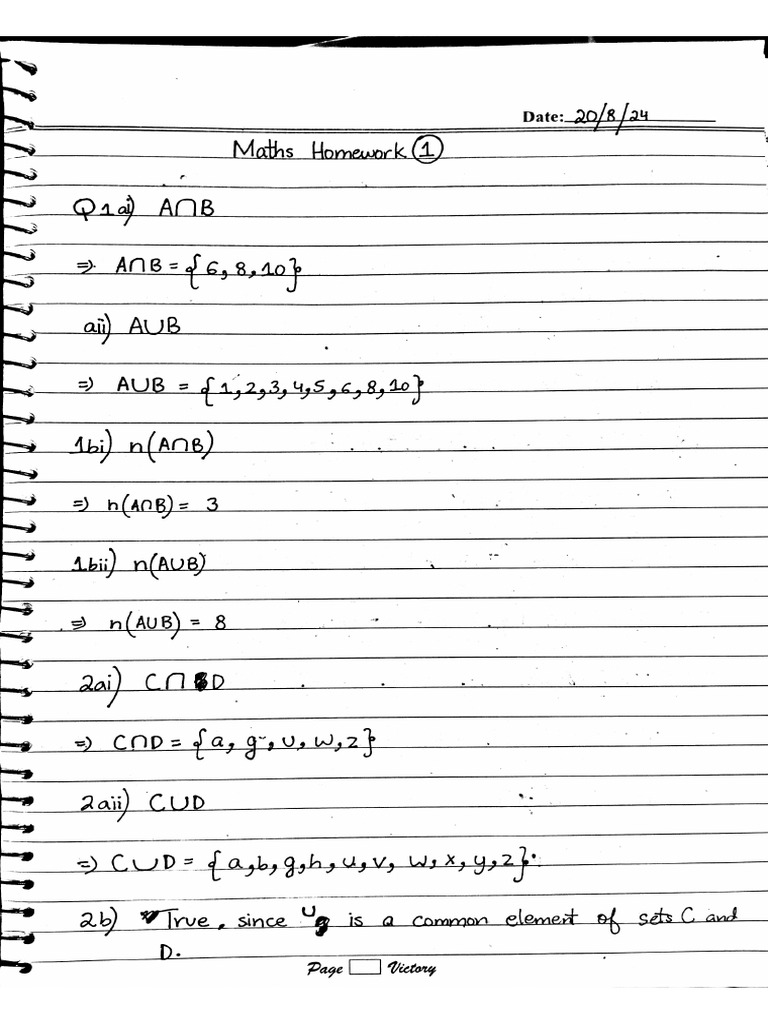 Date: 20/8/24
Maths Homework ①
Q1ai) A∩B
⇒ A∩B = {6, 8, 10}
aii) A∪B
⇒ A∪B = {1,2,3,4,5,6,8,10}
1bi) n(A∩B)
⇒ n(A∩B) = 3
1bii) n(A∪B)
⇒ n(A∪B) = 8
2ai) C∩D
⇒ C∩D = {a, g, u, w, z}
2aii) C∪D
⇒ C∪D = {a,b,g,h,u,v, w,x,y,z}
2b) True, since u is a common element of sets C and
D.
Page Victory